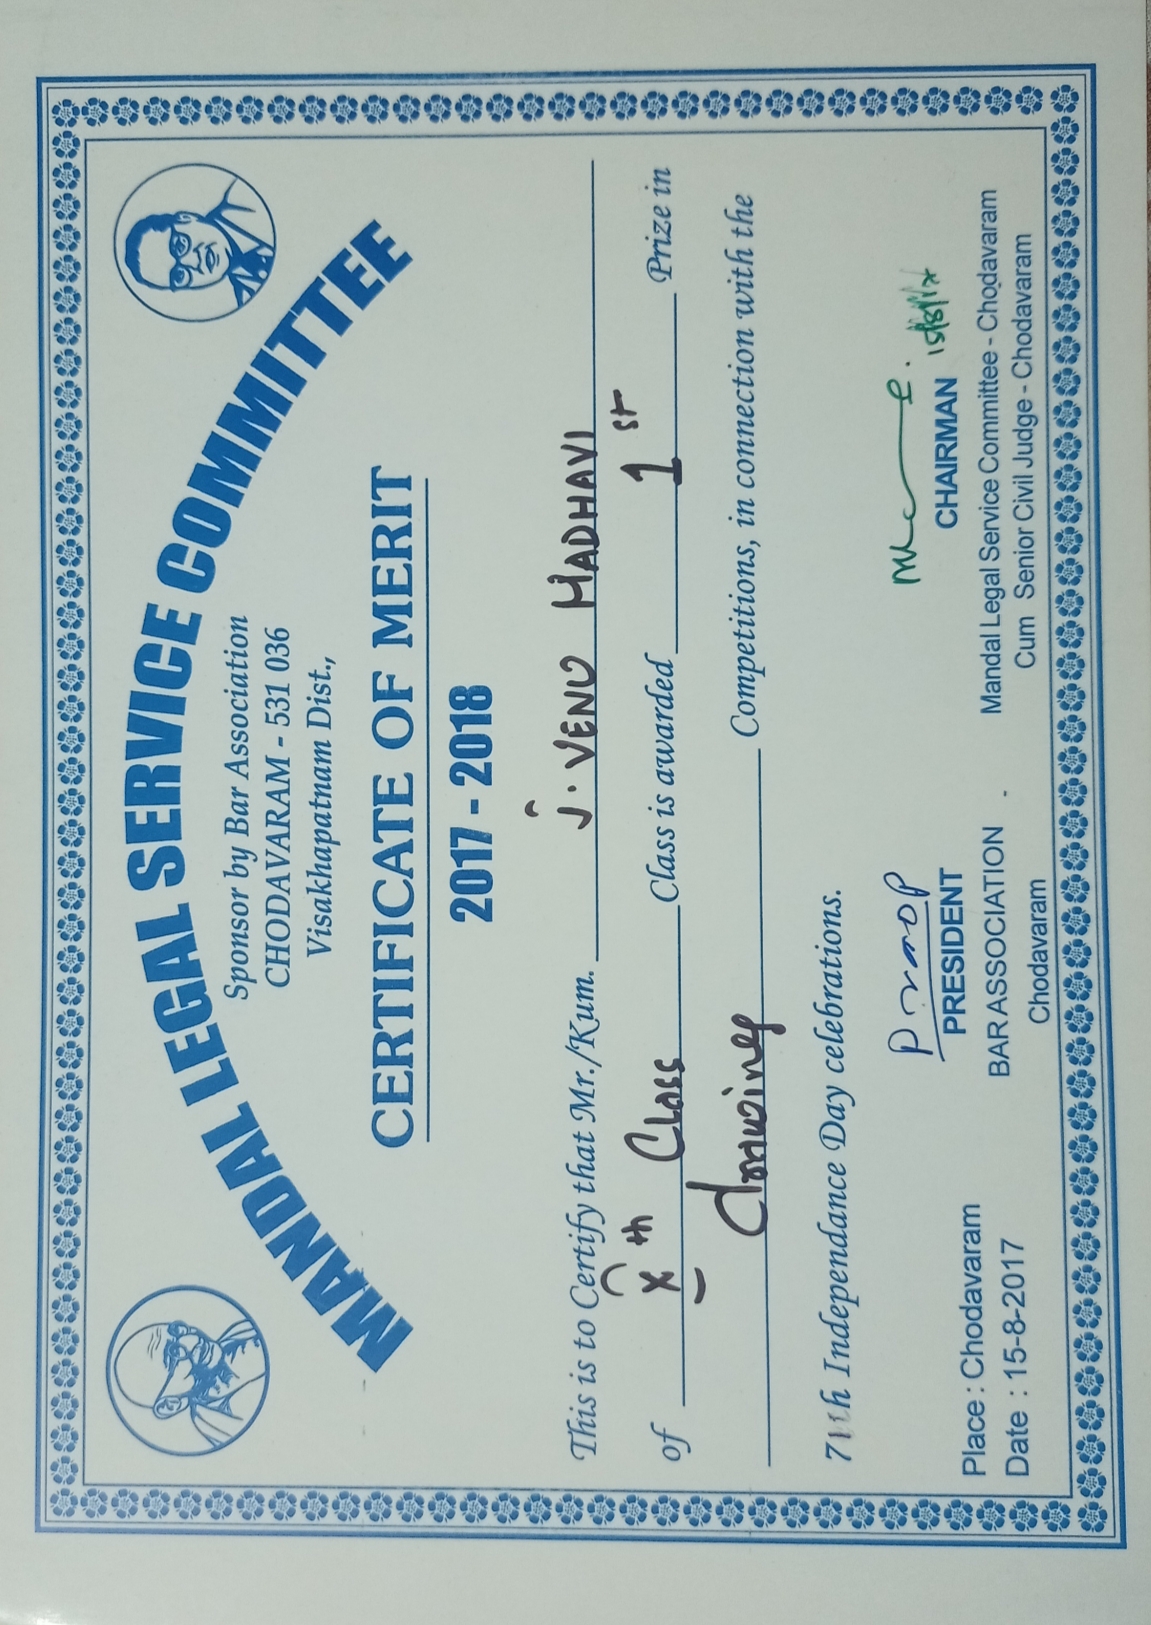 MANDAL LEGAL SERVICE COMMITTEE
Sponsor by Bar Association
CHODAVARAM - 531 036
Visakhapatnam Dist.,
CERTIFICATE OF MERIT
2017 - 2018
This is to Certify that Mr./Kum. J. VENU MADHAVI
of Xth Class Class is awarded 1st Prize in
drawing Competitions, in connection with the
71th Independance Day celebrations.
PRESIDENT
BAR ASSOCIATION
Chodavaram
15/8/17
CHAIRMAN
Mandal Legal Service Committee - Chodavaram
Cum Senior Civil Judge - Chodavaram
Place : Chodavaram
Date : 15-8-2017